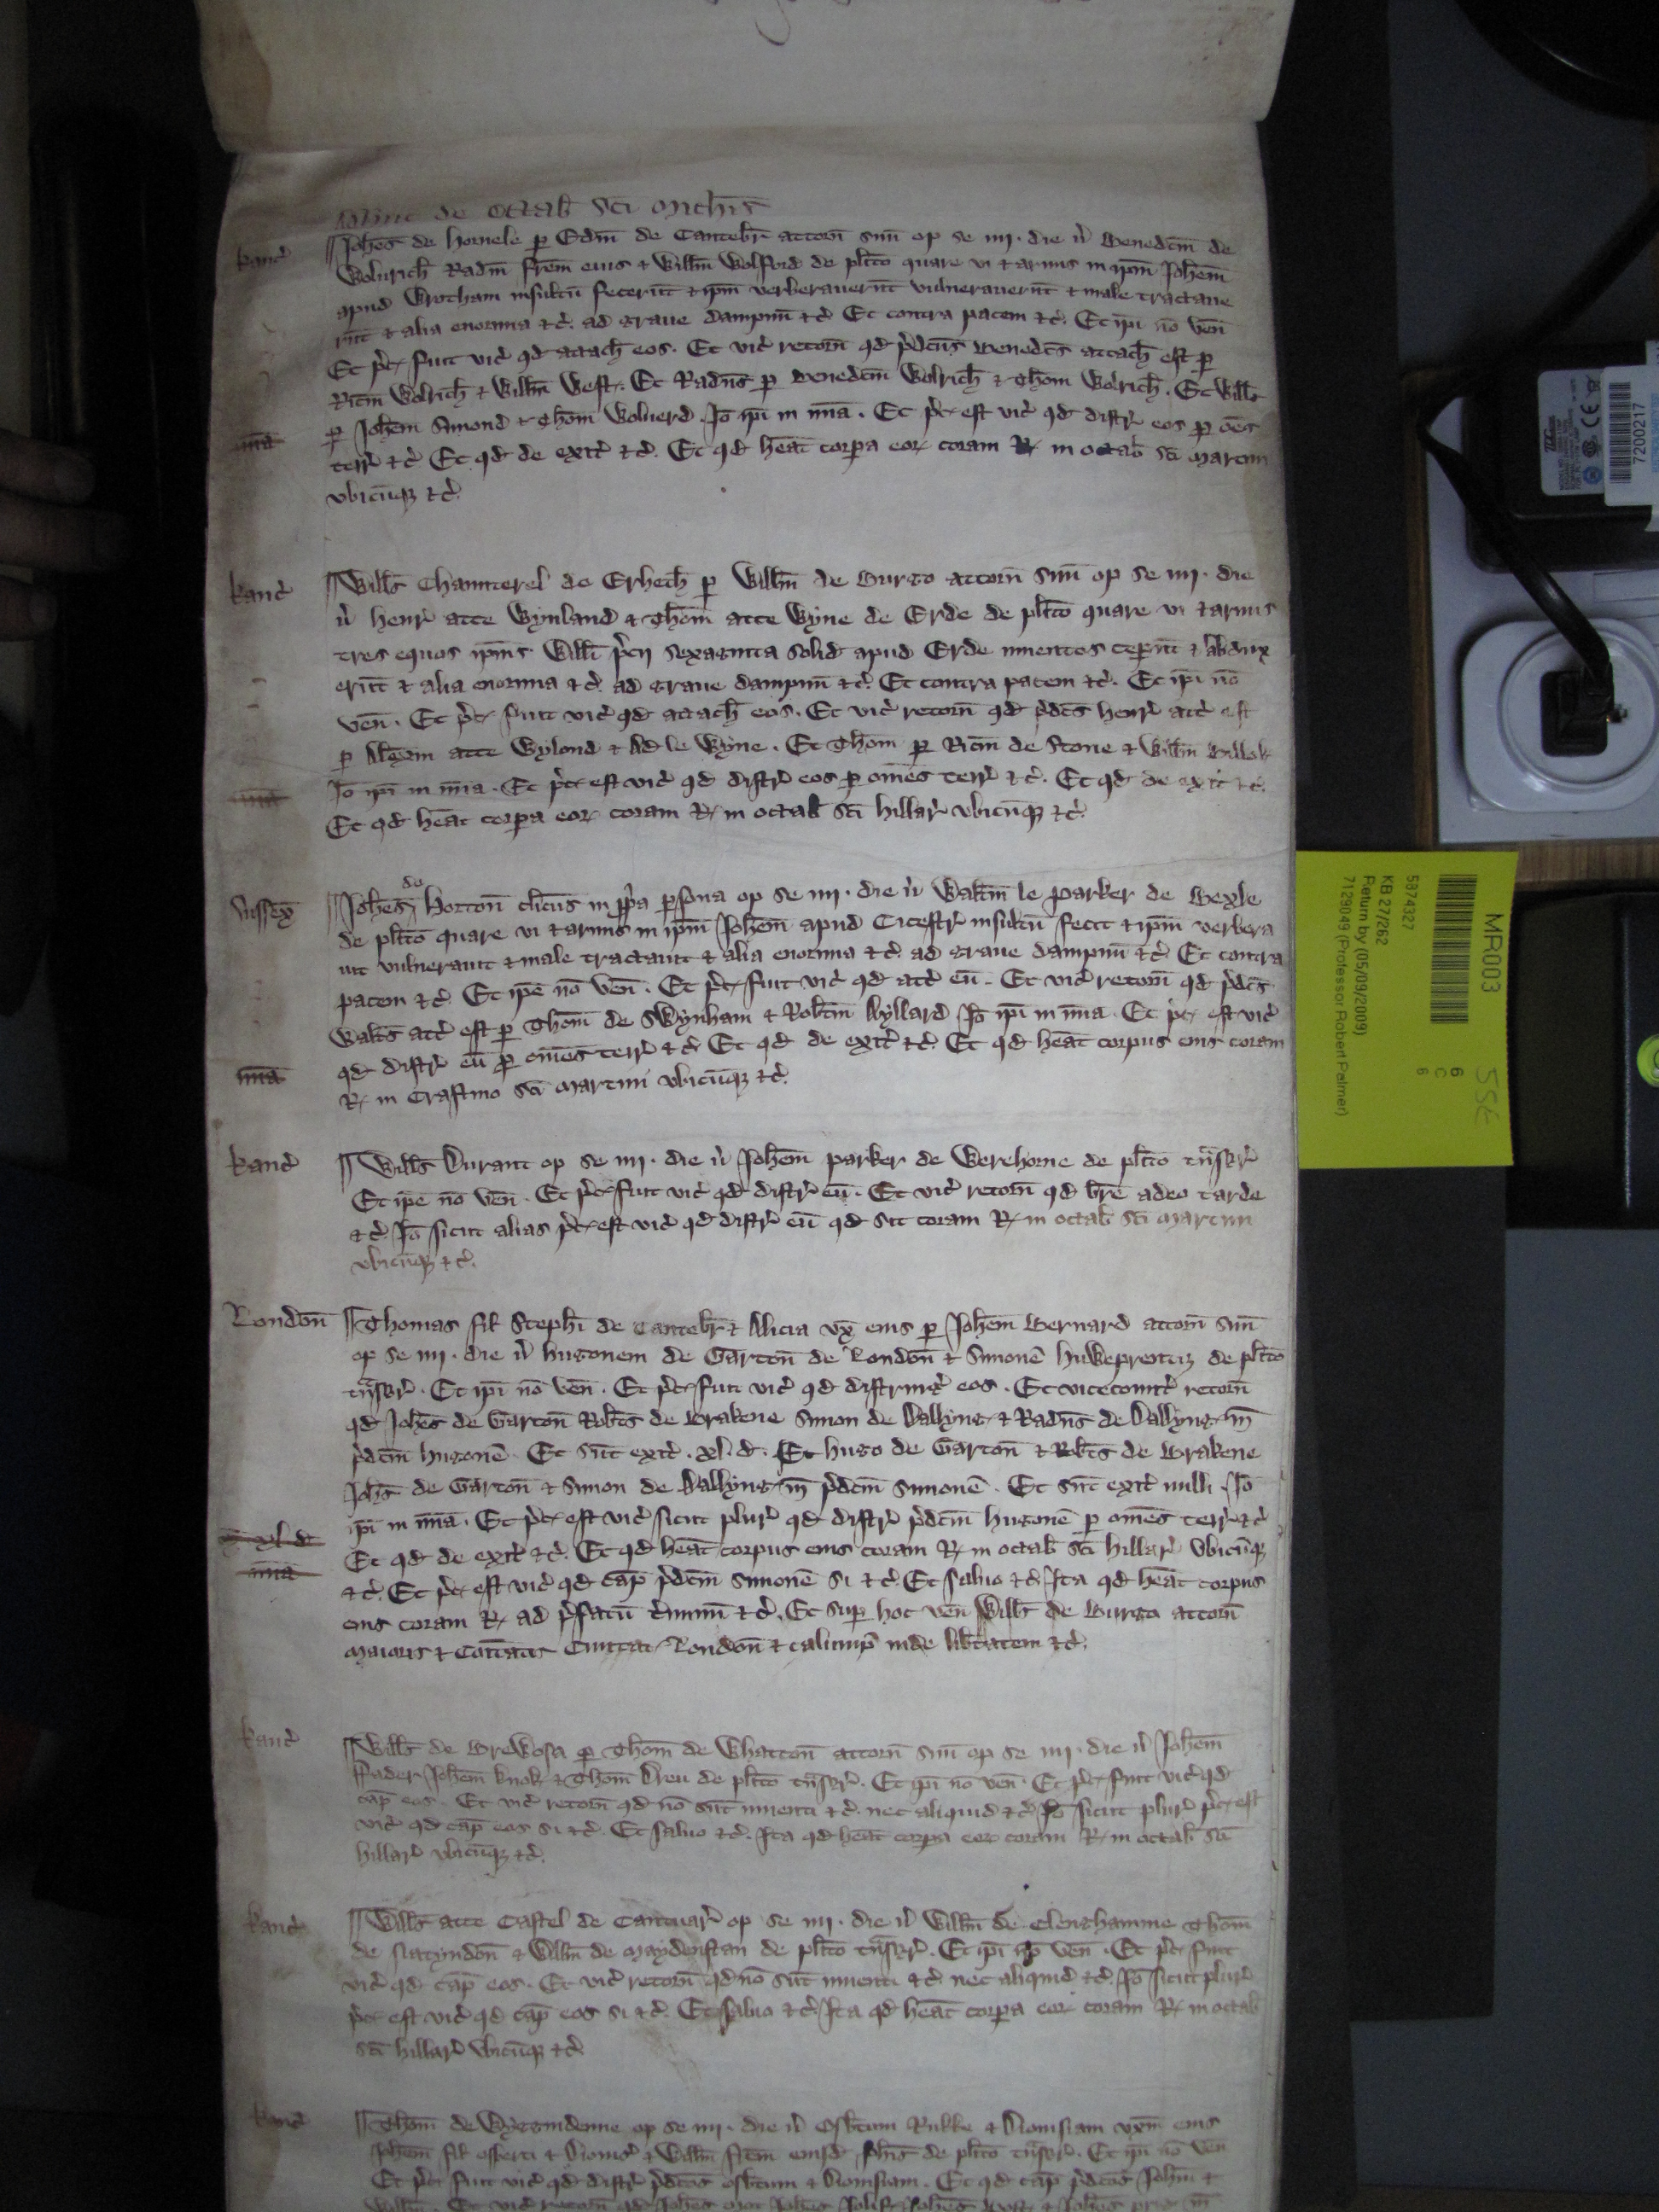 Adhuc de Octab̄ Sc̄i Mich̄is
Kanc̄
Joh̄es de Hornele p̱ Edm̄ de Cantebr̄ attorn̄ suū op̄ se iiij. die v̄s Benedc̄m de
Wolurich̄ Rad̄m fr̄em eius & Will̄m Wolford de pl̄ito quare vi & armis in ip̄m Joh̄em
apud Wrotham insultū fecerūt & ip̄m verberauerūt vulnerauerūt & male tractaue
rūt & alia enormia &c̄. ad graue dampnū &c̄ Et contra pacem &c̄. Et ip̄i nō ven̄
Et p̄c̄ fuit vic̄ qd̄ attach̄ eos. Et vic̄ retorn̄ qd̄ p̄dc̄us Benedc̄s attach̄ est p̱
Ric̄m Wolrich̄ & Will̄m West. Et Rad̄us p̱ Benedc̄m Wolrich̄ & Thom̄ Wolrich̄. Et Will̄s
p̱ Joh̄em Simond & Thom̄ Woluerd. Jō ip̄i in mīa. Et p̄c̄ est vic̄ qd̄ distr̄ eos p̱ om̄es
terr̄ &c̄ Et qd̄ de exit̄ &c̄. Et qd̄ hēat corp̱a eor̄ coram R̄ in octab̄ Sc̄i Martini
vbicūq̨ &c̄.
mīa
Kanc̄
Will̄s Chaunterel de Erheth̄ p̱ Will̄m de Burgo attorn̄ suū op̄ se iiij. die
v̄s Henr̄ atte Wynland & Thom̄ atte Wyne de Erde de pl̄ito quare vi & armis
tres equos ip̄ius Will̄i p̄cij sexaginta solid̄ apud Erde inuentos cep̱ūt & abdux
erūt & alia enormia &c̄ ad graue dampnū &c̄. Et contra pacem &c̄. Et ip̄i nō
ven̄. Et p̄c̄ fuit vic̄ qd̄ attach̄ eos. Et vic̄ retorn̄ qd̄ p̄dc̄s Henr̄ attc̄ est
p̱ atte Wylond & Ad̄ le Wyne. Et Thom̄ p̱ Ric̄m de Stone & Will̄m
Jō ip̄i in mīa. Et p̄c̄ est vic̄ qd̄ distr̄ eos p̱ om̄es terr̄ &c̄. Et qd̄ de exit̄ &c̄.
Et qd̄ hēat corp̱a eor̄ coram R̄ in octab̄ Sc̄i Hillar̄ vbicūq̨ &c̄
mīa
Sussex̄
Joh̄es de Hotton̄ cl̄icus in p̱p̄a p̱sona op̄ se iiij. die v̄s Walt̄m le Parker de Bexle
de pl̄ito quare vi & armis in ip̄m Joh̄em apud Cicestr̄ insultū fecit & ip̄m verbera
uit vulnerauit & male tractauit & alia enormia &c̄ ad graue dampnū &c̄ Et contra
pacem &c̄ Et ip̄e nō ven̄. Et p̄c̄ fuit vic̄ qd̄ attc̄ eū. Et vic̄ retorn̄ qd̄ p̄dc̄s
Walt̄s attc̄ est p̱ Thom̄ de Swynham & Rob̄tm Ayllard Jō ip̄i in mīa. Et p̄c̄ est vic̄
qd̄ distr̄ eū p̱ om̄es terr̄ &c̄ Et qd̄ de exit̄ &c̄. Et qd̄ hēat corpus eius coram
R̄ in Crastino Sc̄i Martini vbicūq̨ &c̄.
mīa
Kanc̄
Will̄s Durant op̄ se iiij. die v̄s Joh̄em Parker de Werehorne de pl̄ito tn̄sgr̄
Et ip̄e nō ven̄. Et p̄c̄ fuit vic̄ qd̄ distr̄ eū. Et vic̄ retorn̄ qd̄ br̄e adeo tarde
&c̄ Jō sicut alias p̄c̄ est vic̄ qd̄ distr̄ eū qd̄ sit coram R̄ in octab̄ Sc̄i Martini
vbicūq̨ &c̄.
London̄
Thomas fil̄ Steph̄i de Cantebr̄ & Alicia vx̄ eius p̱ Joh̄em Bernard attorn̄ suū
op̄ se iiij. die v̄s Hugonem de Garton̄ de London̄ & Simonē Huweprentiz de pl̄ito
tn̄sgr̄. Et ip̄i nō ven̄. Et p̄c̄ fuit vic̄ qd̄ distringc̄ eos. Et vicecomit̄ retorn̄
qd̄ Joh̄es de Garton̄ Rob̄ts de Brakene Simon de Dallyng & Rad̄us de Dallyng m̄
p̄dc̄m Hugonē. Et sūt exit̄. xl. d̄. Et Hugo de Garton̄ & Rob̄ts de Brakene
Joh̄s de Garton̄ & Simon de Dallyng m̄ p̄dc̄m Simonē. Et sūt exit̄ nulli. Jō
ip̄i in mīa. Et p̄c̄ est vic̄ sicut plur̄ qd̄ distr̄ p̄dc̄m Hugonē p̱ om̄es terr̄ &c̄
Et qd̄ de exit̄ &c̄. Et qd̄ hēat corpus eius coram R̄ in octab̄ Sc̄i Hillar̄ vbicūq̨
&c̄. Et p̄c̄ est vic̄ qd̄ cap̄ p̄dc̄m Simonē si &c̄. Et saluo &c̄ Ita qd̄ hēat corpus
eius coram R̄ ad p̄fatū t̄minū &c̄. Et sup̱ hoc ven̄ Will̄s de Burgo attorn̄
Maioris & Cōitatis Ciuitat̄ London̄ & calump̄ inde lib̄tatem &c̄.
xl d̄
mīa
Kanc̄
Will̄s de Brewosa p̱ Thom̄ de Whatton̄ attorn̄ suū op̄ se iiij. die v̄s Joh̄em
Fader Joh̄em Knok & Thom̄ Dreu de pl̄ito tn̄sgr̄. Et ip̄i nō ven̄. Et p̄c̄ fuit vic̄ qd̄
cap̄ eos. Et vic̄ retorn̄ qd̄ nō sūt inuenti &c̄. nec aliquid &c̄ Jō sicut plur̄ p̄c̄ est
vic̄ qd̄ cap̄ eos si &c̄. Et saluo &c̄. Ita qd̄ hēat corp̱a eor̄ coram R̄ in octab̄ Sc̄i
Hillar̄ vbicūq̨ &c̄.
Kanc̄
Will̄s atte Castel de Cantuar̄ op̄ se iiij. die v̄s Will̄m de Clenghamme Thom̄
de & Will̄m de Maydenstan de pl̄ito tn̄sgr̄. Et ip̄i nō ven̄. Et p̄c̄ fuit
vic̄ qd̄ cap̄ eos. Et vic̄ retorn̄ qd̄ nō sūt inuenti &c̄ nec aliquid &c̄. Jō sicut plur̄
p̄c̄ est vic̄ qd̄ cap̄ eos si &c̄. Et saluo &c̄. Ita qd̄ hēat corp̱a eor̄ coram R̄ in octab̄
Sc̄i Hillar̄ vbicūq̨ &c̄
Kanc̄
Thom̄ de op̄ se iiij. die v̄s Osb̄tum Rukke & Dionisiam vx̄m eius
Joh̄em fil̄ Osberti & Dionis̄ & Will̄m fr̄em eiusd̄ Joh̄is de pl̄ito tn̄sgr̄. Et ip̄i nō ven̄
Et p̄c̄ fuit vic̄ qd̄ distr̄ p̄dc̄os Osb̄tum & Dionisiam. Et qd̄ cap̄ p̄dc̄os Joh̄m &
Will̄m. Et vic̄ retorn̄ qd̄ Joh̄es
MR003
5874327
KB 27/262
Return by (05/09/2009)
7129049 (Professor Robert Palmer)
7200217